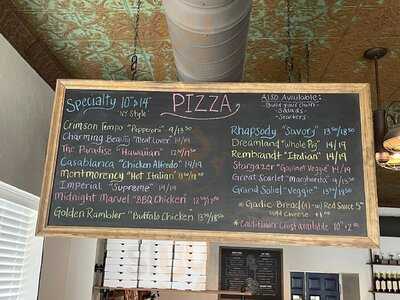 Specialty 10" & 14"
NY Style
PIZZA
Also Available
- Build your Own -
- Salads -
- Starters -
Crimson Tempo "Pepperoni" 9/13.50
Charming Beauty "Meat Lover" 14/19
The Paradise "Hawaiian"
Casablanca "Chicken Alfredo" 14/19
Montmorency "Hot Italian"
Imperial "Supreme" 14/19
Midnight Marvel "BBQ Chicken"
Golden Rambler "Buffalo Chicken
Rhapsody "Savory" 13.50/18.50
Dreamland "Whole Pig" 14/19
Rembrandt "Italian" 14/19
Stargazer "Gourmet Veggie" 14/19
Great Scarlet "Margherita"
Grand Soliel "Veggie"
* Garlic-Bread w/ Red Sauce 5
Add Cheese
* Cauliflower Crust available 10" +2.00